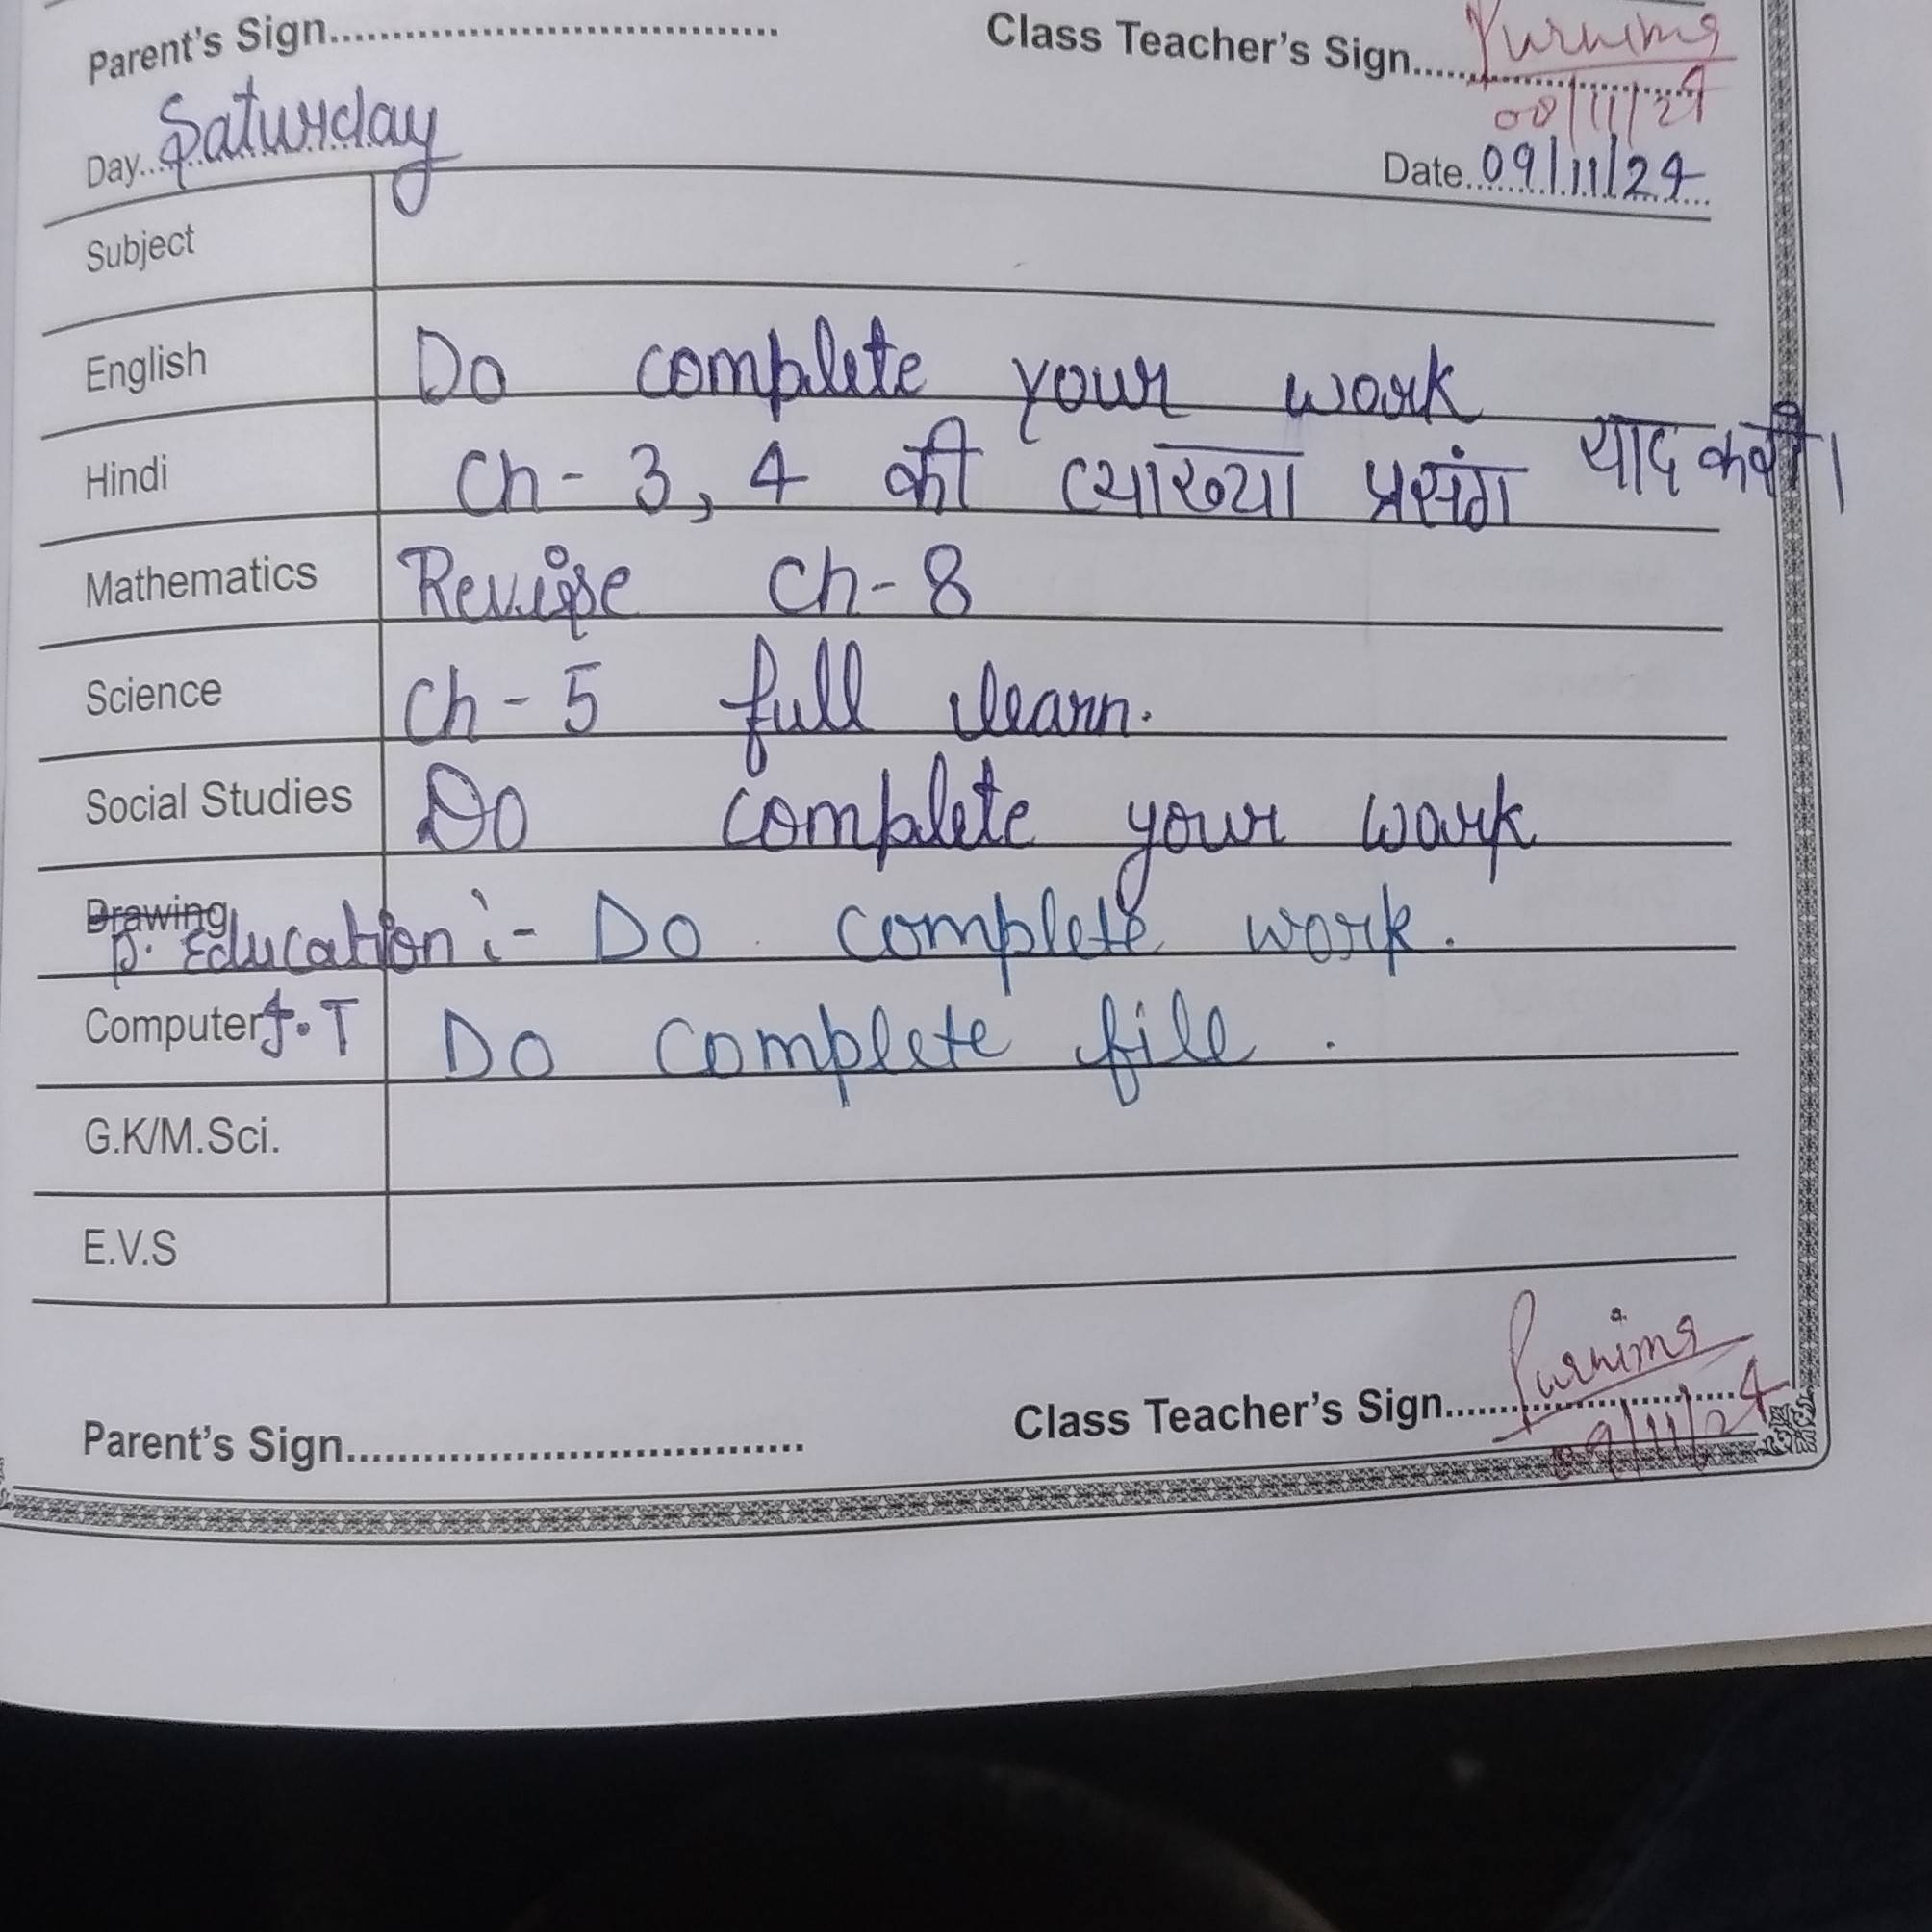 Parent's Sign.................................... Class Teacher's Sign...... Purnima
08/11/24
Day...Saturday Date...09/11/24
Subject
English Do complete your work
Hindi Ch - 3, 4 की व्याख्या प्रसंग याद करो।
Mathematics Revise Ch - 8
Science Ch - 5 full learn.
Social Studies Do complete your work
Drawing
P. Education :- Do complete work.
Computer I.T Do complete file.
G.K/M.Sci.
E.V.S
Parent's Sign.................................... Class Teacher's Sign...... Purnima
09/11/24